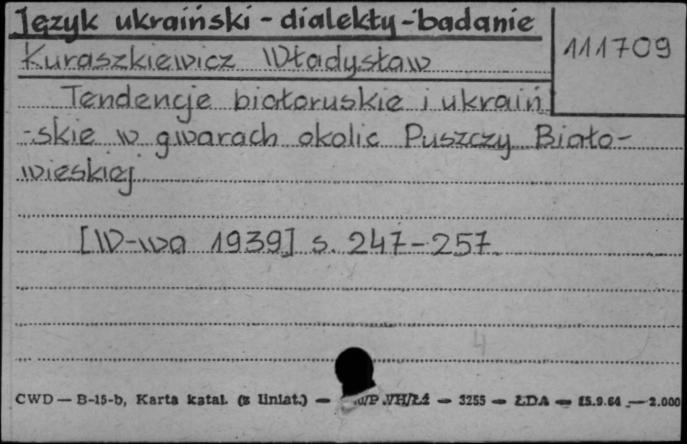 Język ukraiński - dialekty - badanie
111709
Kuraszkiewicz Władysław
Tendencje białoruskie i ukraiń
-skie w gwarach okolic Puszczy Biało-
wieskiej
[W-wa 1939] s. 247-257
4
CWD — B-15-b, Karta katal. (z liniat.) — /P.VH/Łź — 3255 — ŁDA — 15.9.64 — 2.000